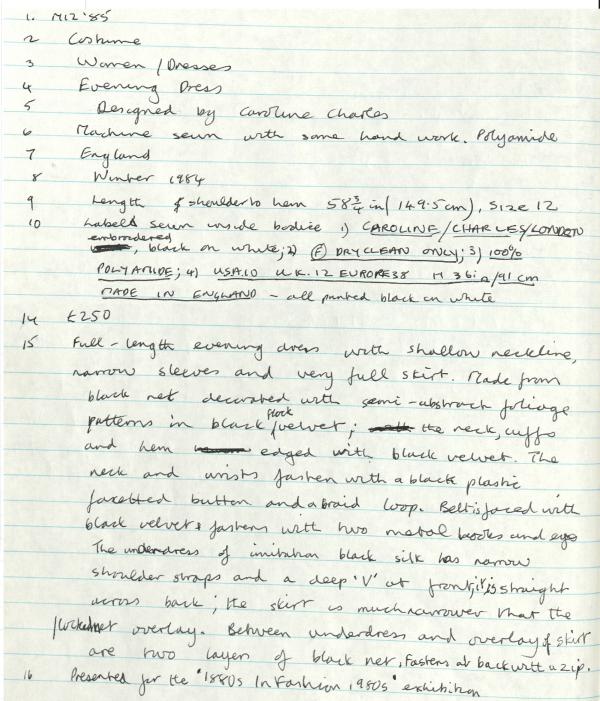 1. M12 '85
2 Costume
3 Women / Dresses
4 Evening Dress
5 Designed by Caroline Charles
6 Machine sewn with some hand work. Polyamide
7 England
8 Winter 1984
9 Length of shoulder to hem 58¾ in (149.5 cm), Size 12
10 Labels sewn inside bodice 1) CAROLINE/CHARLES/LONDON
embroidered, black on white; 2) (F) DRYCLEAN ONLY; 3) 100%
POLYAMIDE; 4) USA.10 U.K.12 EUROPE38 H 36in/91 cm
MADE IN ENGLAND - all printed black on white
14 £250
15 Full-length evening dress with shallow neckline,
narrow sleeves and very full skirt. Made from
black net decorated with semi-abstract foliage
patterns in black flock/velvet; the neck, cuffs
and hem edged with black velvet. The
neck and wrists fasten with a black plastic
facetted button and a braid loop. Belt is faced with
black velvet & fastens with two metal hooks and eyes
The underdress of imitation black silk has narrow
shoulder straps and a deep 'V' at front; it is straight
across back; the skirt is much narrower that the
flocked net overlay. Between underdress and overlay of skirt
are two layers of black net, Fastens at back with a zip.
16 Presented for the "1880s In Fashion 1980s" exhibition